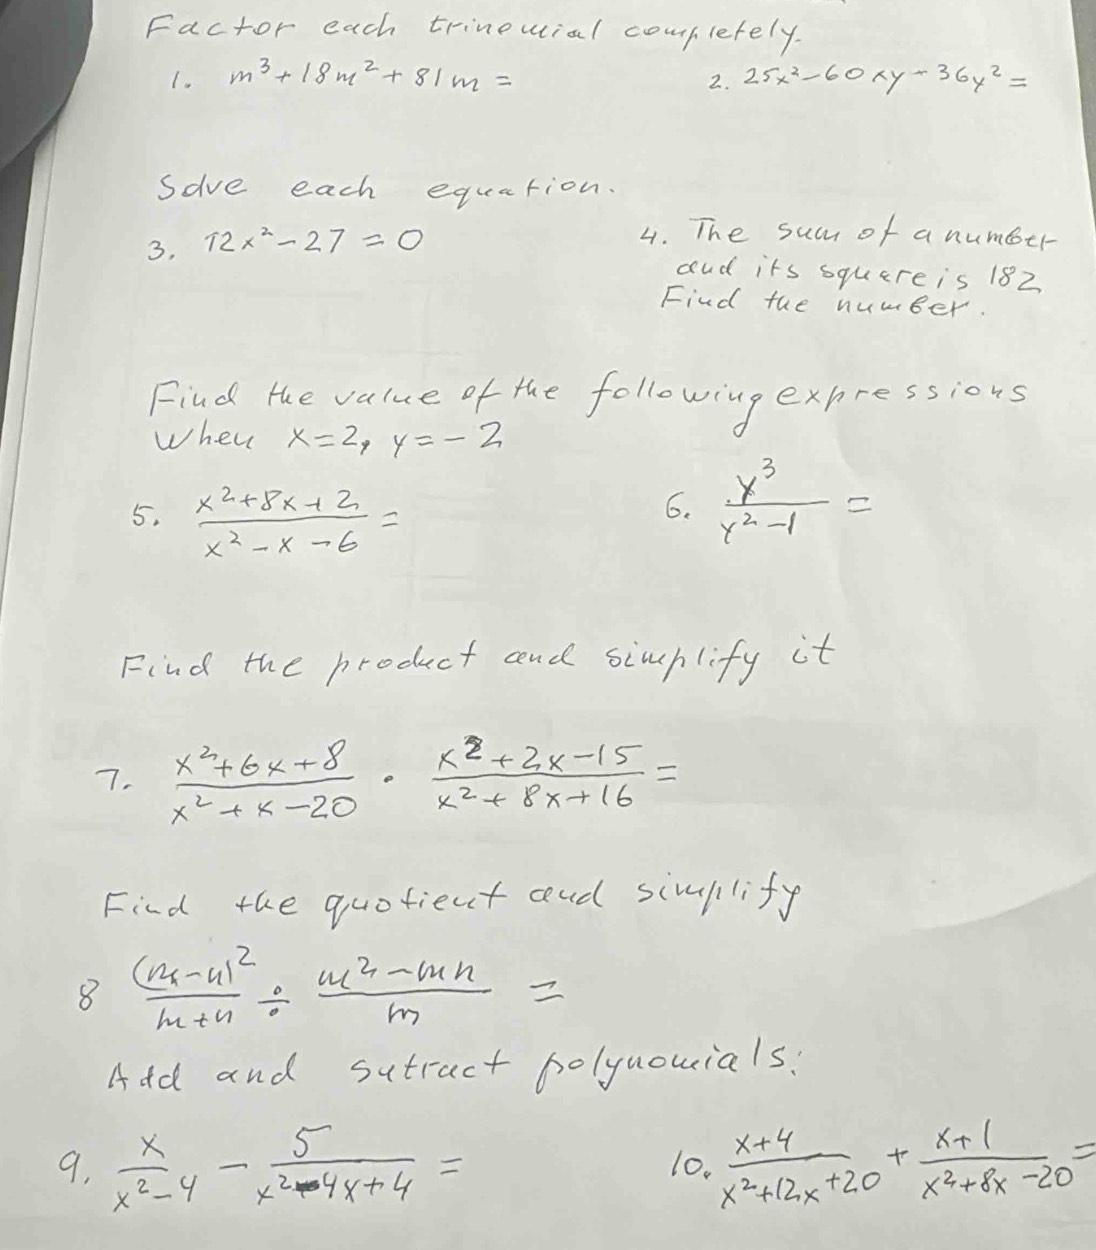 Factor each trinomial completely.
1. m³+18m²+81m =
2. 25x²-60xy-36y² =
Solve each equation.
3. 12x²-27=0
4. The sum of a number
and its square is 182
Find the number.
Find the value of the following expressions
When x=2, y=-2
5. (x²+8x+2)/(x²-x-6) =
6. y³/(y²-1) =
Find the product and simplify it
7. (x²+6x+8)/(x²+x-20) · (x²+2x-15)/(x²+8x+16) =
Find the quotient and simplify
8 (m-n)²/(m+n) ÷ (m²-mn)/m =
Add and sutract polynomials:
9. x/(x²-4) - 5/(x²-4x+4) =
10. (x+4)/(x²+12x+20) + (x+1)/(x²+8x-20) =